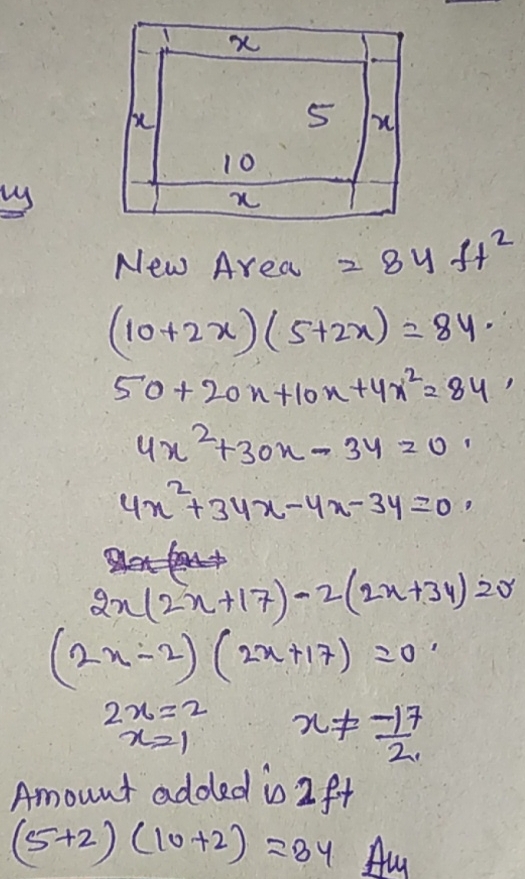 x
x 5 x
10
x
New Area = 84 ft²
(10+2x)(5+2x) = 84.
50+20x+10x+4x² = 84
4x²+30x-34 = 0
4x²+34x-4x-34 = 0
2x(2x+17)-2(2x+34) = 0
(2x-2)(2x+17) = 0
2x=2 x ≠ -17/2
x=1
Amount added is 2ft
(5+2)(10+2) = 84 Ans